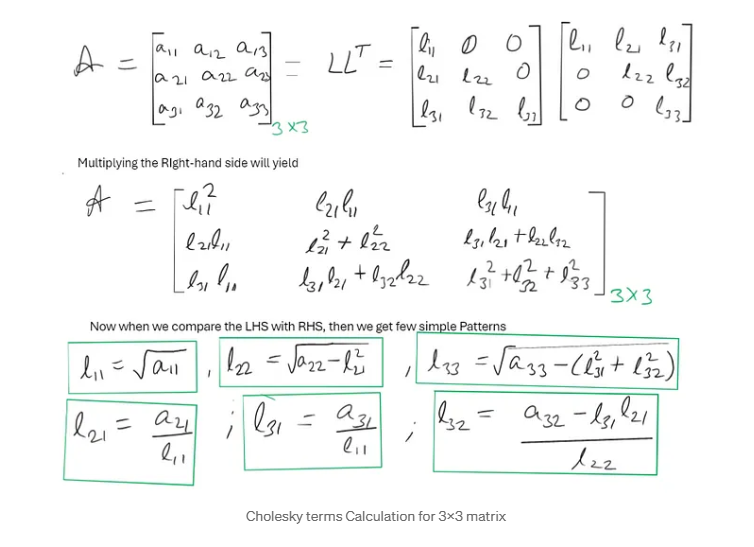 A = [a₁₁ a₁₂ a₁₃ = LLᵀ = [l₁₁ 0 0] [l₁₁ l₂₁ l₃₁
a₂₁ a₂₂ a₂₃ l₂₁ l₂₂ 0 0 l₂₂ l₃₂
a₃₁ a₃₂ a₃₃] l₃₁ l₃₂ l₃₃] 0 0 l₃₃]
3×3
Multiplying the RIght-hand side will yield
A = [l₁₁² l₂₁l₁₁ l₃₁l₁₁
l₂₁l₁₁ l₂₁² + l₂₂² l₃₁l₂₁ + l₂₂l₃₂
l₃₁l₁₁ l₃₁l₂₁ + l₃₂l₂₂ l₃₁² + l₃₂² + l₃₃²]
3×3
Now when we compare the LHS with RHS, then we get few simple Patterns
l₁₁ = √a₁₁ , l₂₂ = √a₂₂ − l₂₁² , l₃₃ = √a₃₃ − (l₃₁² + l₃₂²)
l₂₁ = a₂₁ / l₁₁ ; l₃₁ = a₃₁ / l₁₁ ; l₃₂ = a₃₂ − l₃₁l₂₁ / l₂₂
Cholesky terms Calculation for 3×3 matrix